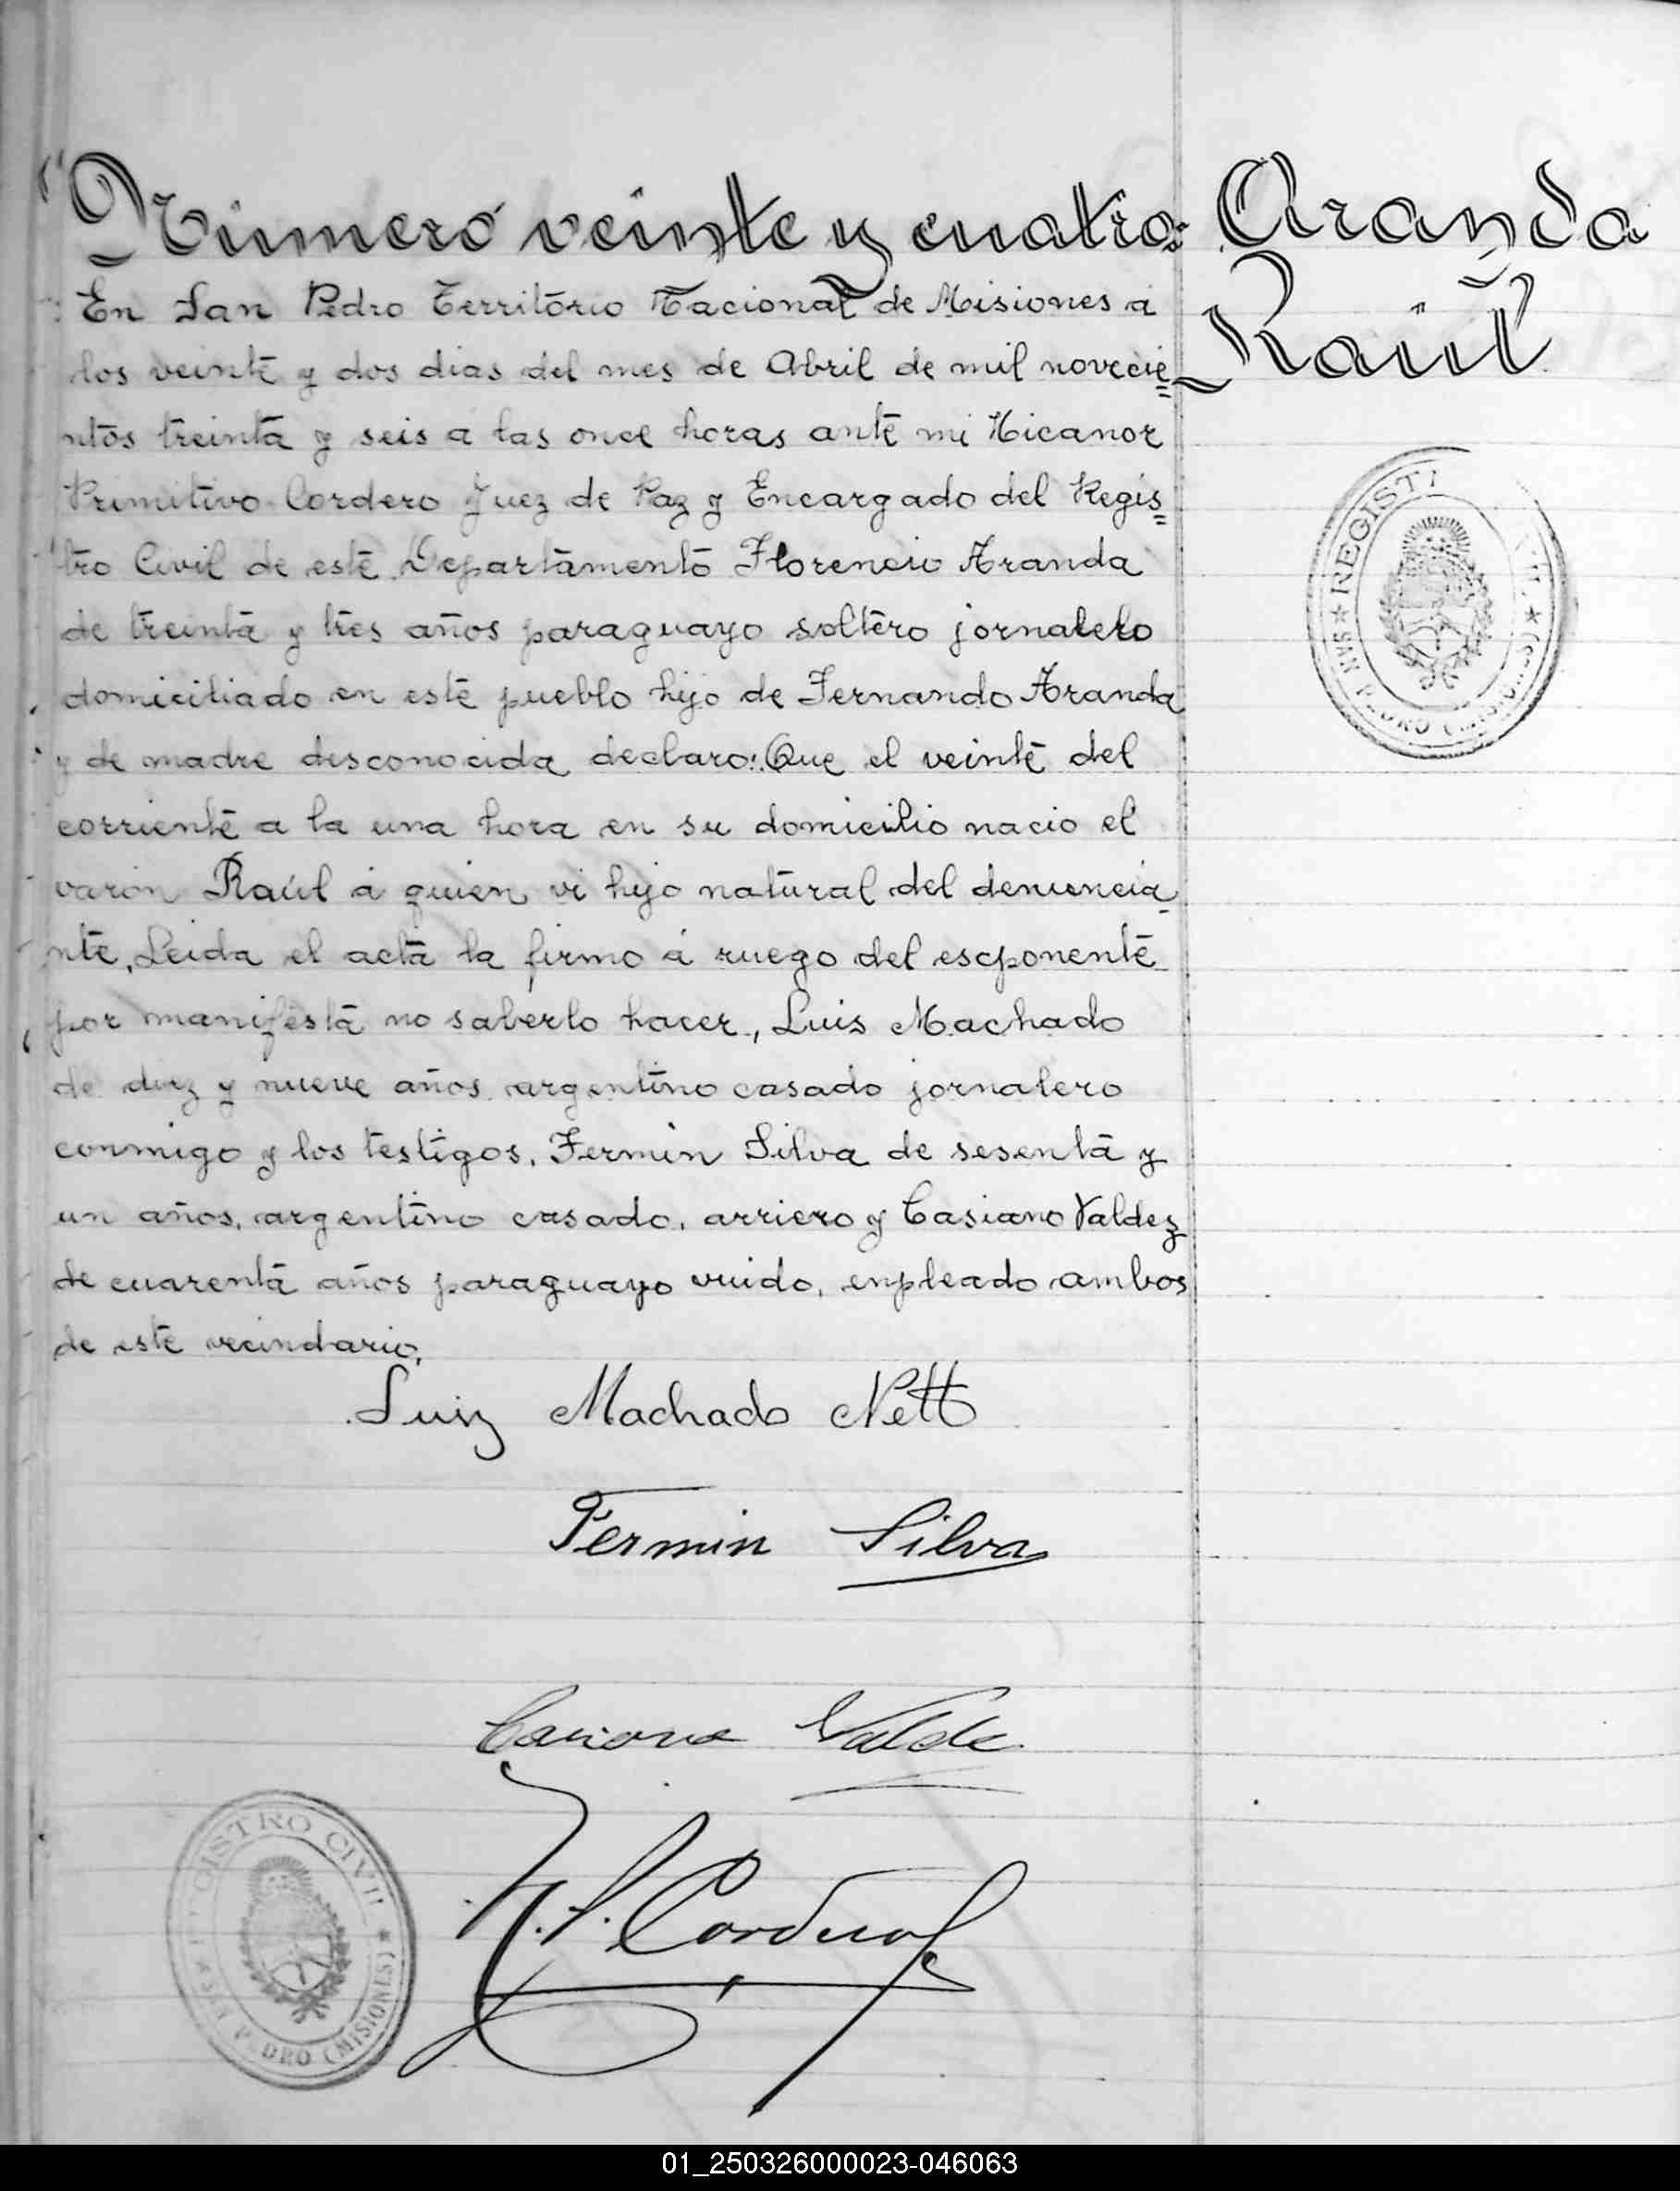 Número veinte y cuatro=
Aranda
Raúl
En San Pedro Territorio Nacional de Misiones á
los veinte y dos dias del mes de Abril de mil novecie=
ntos treinta y seis a las once horas ante mi Nicanor
Primitivo Cordero Juez de Paz y Encargado del Regis=
tro Civil de este Departamento Florencio Aranda
de treinta y tres años paraguayo soltero jornalero
domiciliado en este pueblo hijo de Fernando Aranda
y de madre desconocida declaro: Que el veinte del
corriente a la una hora en su domicilio nacio el
varón Raúl á quien vi hijo natural del denuncia
nte, Leida el acta la firmo á ruego del esponente
por manifesta no saberlo hacer, Luis Machado
de diez y nueve años argentino casado jornalero
conmigo y los testigos, Fermin Silva de sesenta y
un años, argentino casado, arriero y Casiano Valdez
de cuarenta años paraguayo viudo, enpleado ambos
de este vecindario,
Luiz Machado Nett
Fermin Silva
Casiano Valde
N. P. Cordero
REGISTRO CIVIL ★ SAN PEDRO (MISIONES) ★
REGISTRO CIVIL ★ SAN PEDRO (MISIONES) ★
01_250326000023-046063